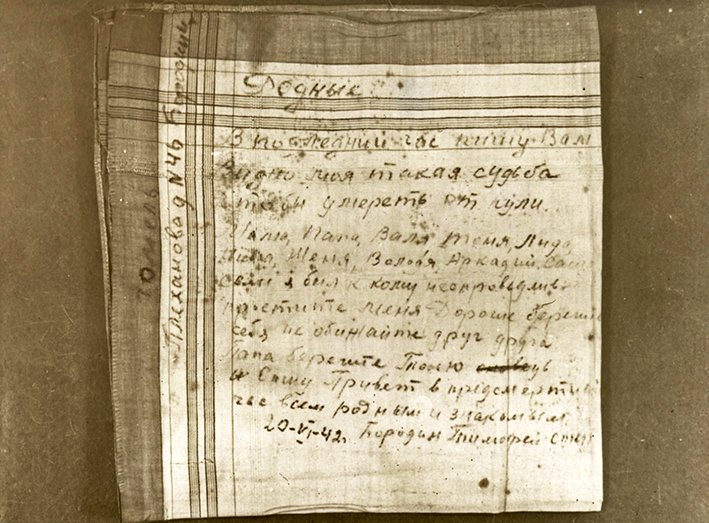 Родные
В последний час пишу Вам
Видно моя такая судьба
чтобы умереть от пули.
Папа, Валя, Женя, Лида,
Женя, Володя, Аркадий, Саша
Если я был к кому несправедлив
простите меня Дорогие берегите
себя не обижайте друг друга
Папа берегите Толю
и Сашу Привет в предсмертный
час всем родным и знакомым
20-VI-42г. Бородин Тимофей
Гомель
Плехановад №46 Бородину